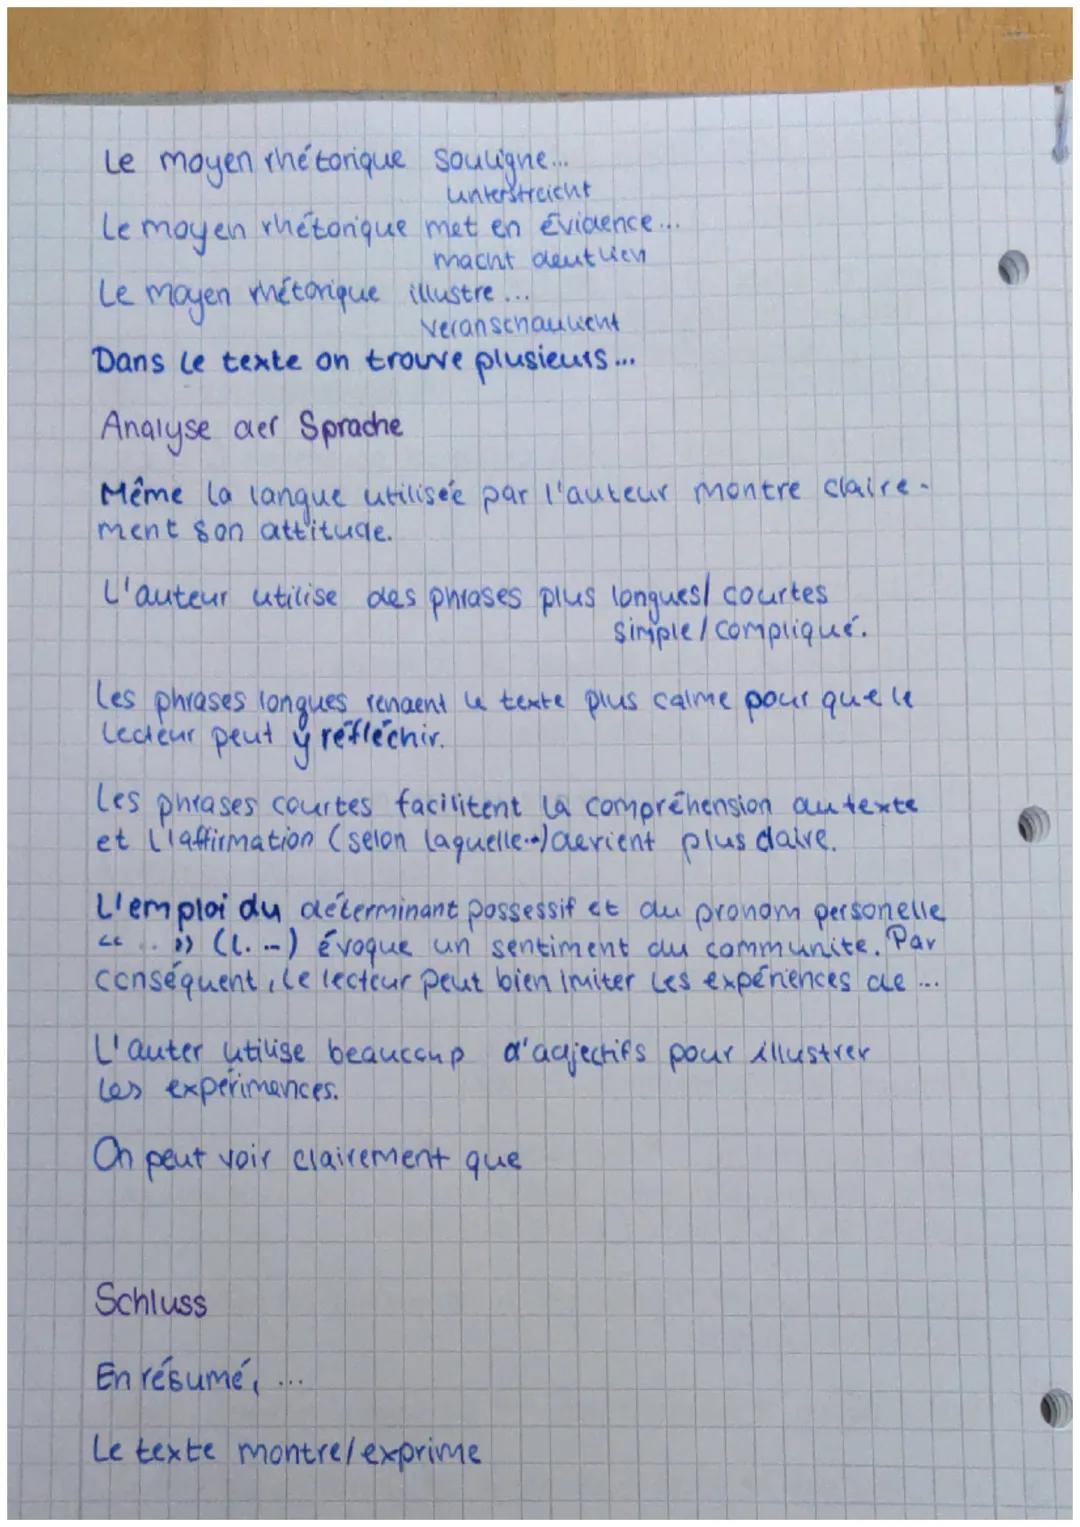 Le moyen rhétorique souligne...
unterstreicht
Le moyen rhétorique met en évidence...
macht deutlich
Le moyen rhétorique illustre...
veranschaulicht
Dans le texte on trouve plusieurs...
Analyse der Sprache
Même la langue utilisée par l'auteur montre claire-
ment son attitude.
L'auteur utilise des phrases plus longues/ courtes
simple/compliqué.
Les phrases longues rendent le texte plus calme pour que le
lecteur peut y réfléchir.
Les phrases courtes facilitent la compréhension du texte
et l'affirmation (selon laquelle...) devient plus claire.
L'emploi du déterminant possessif et du pronom personelle
«...» (l. ...) évoque un sentiment du communite. Par
conséquent, le lecteur peut bien imiter les expériences de ...
L'auter utilise beaucoup d'adjectifs pour illustrer
les experimences.
On peut voir clairement que
Schluss
En résumé, ...
Le texte montre/exprime